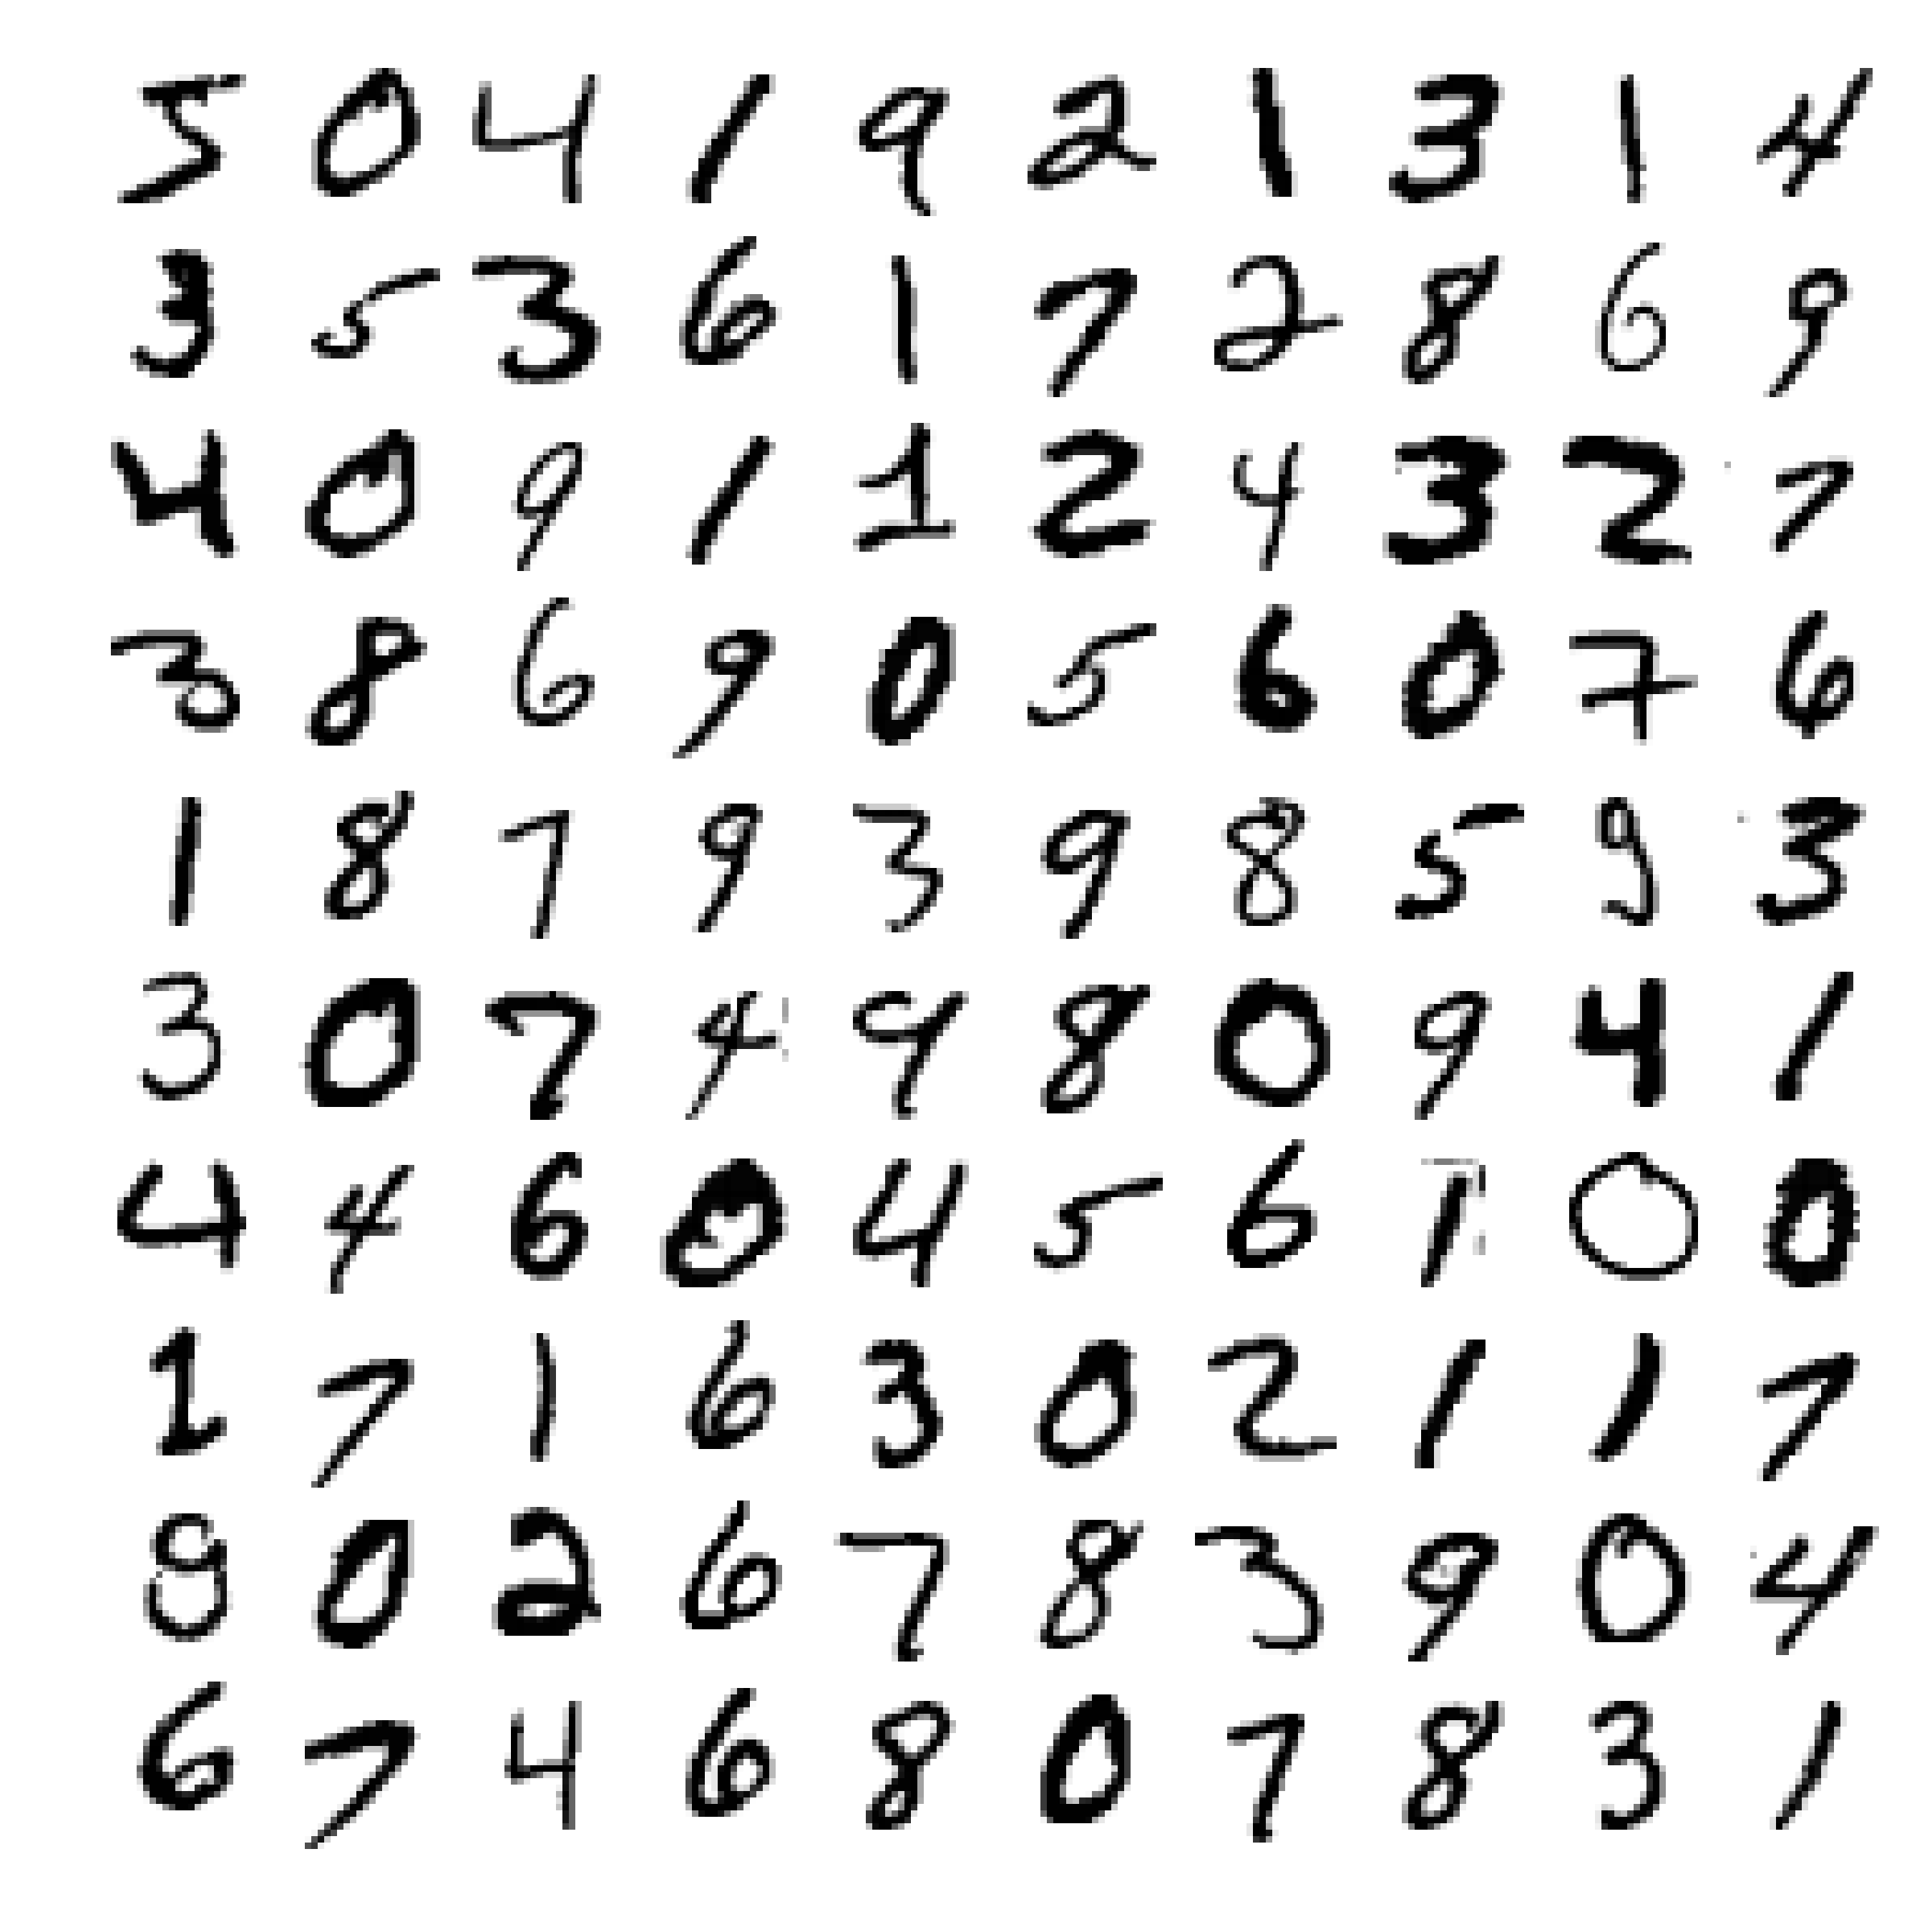 5 0 4 1 9 2 1 3 1 4
3 5 3 6 1 7 2 8 6 9
4 0 9 1 1 2 4 3 2 7
3 8 6 9 0 5 6 0 7 6
1 8 7 9 3 9 8 5 9 3
3 0 7 4 9 8 0 9 4 1
4 4 6 0 4 5 6 1 0 0
1 7 1 6 3 0 2 1 1 7
8 0 2 6 7 8 3 9 0 4
6 7 4 6 8 0 7 8 3 1